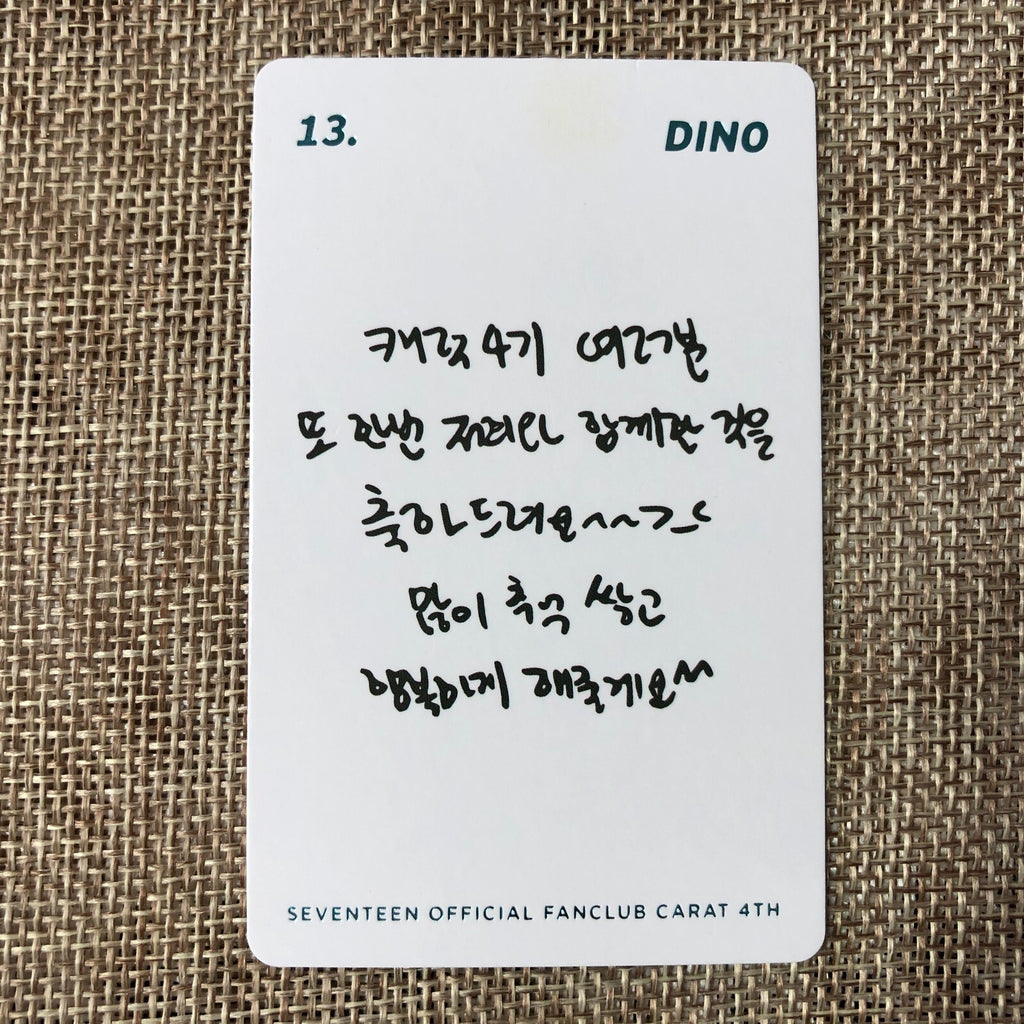 13.
DINO
캐럿 4기 여러분
또 한번 저희와 함께한 것을
축하드려요~~^^
많이 추억 쌓고
행복하게 해줄게요~
SEVENTEEN OFFICIAL FANCLUB CARAT 4TH